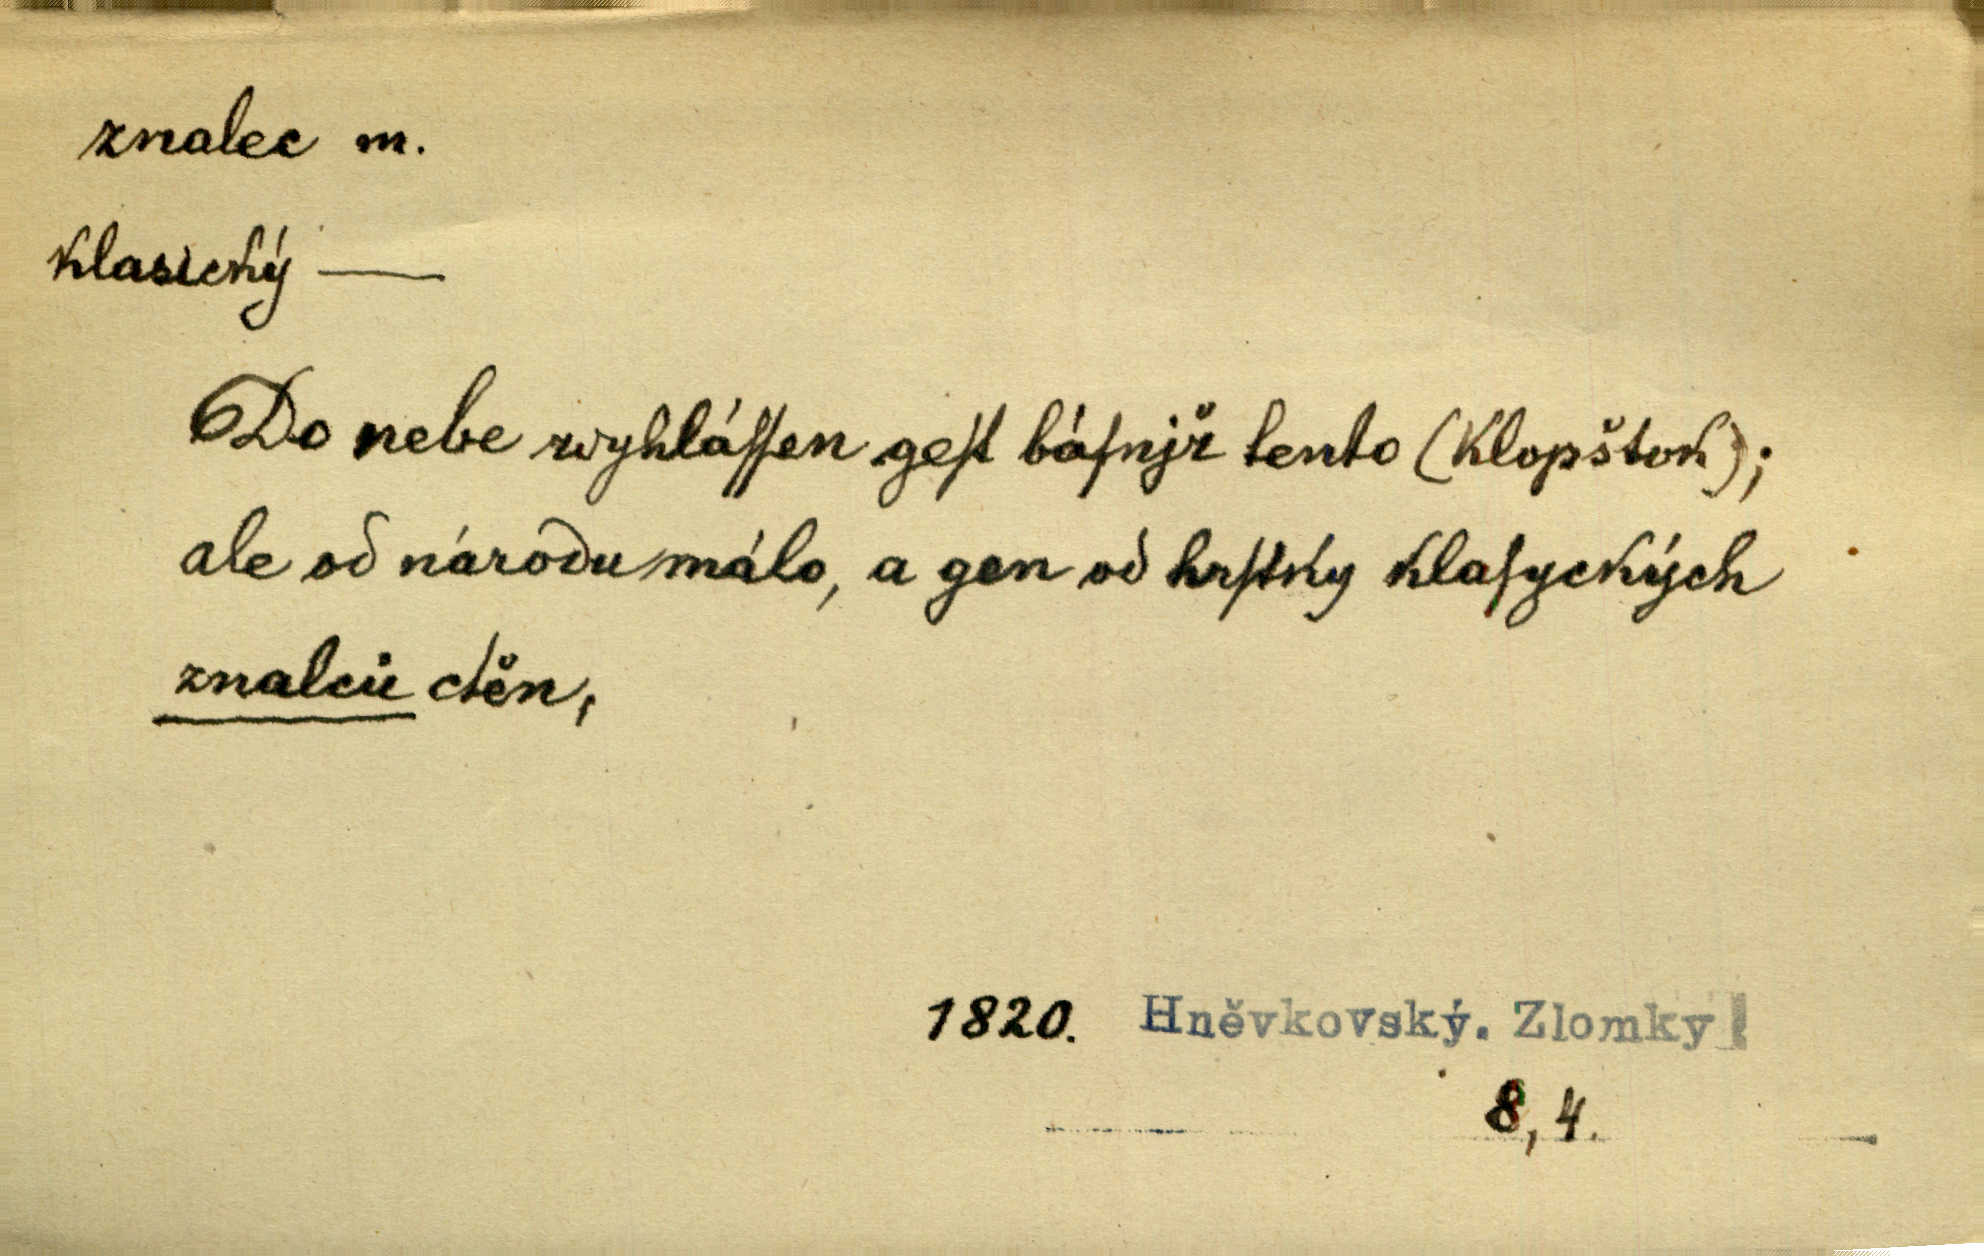 znalec m.
klasický —
Do nebe wyhláſſen geſt báſnjř tento (Klopštok);
ale od národu málo, a gen od hrſtky klaſyckých
znalců ctěn,
1820. Hněvkovský. Zlomky
8, 4.